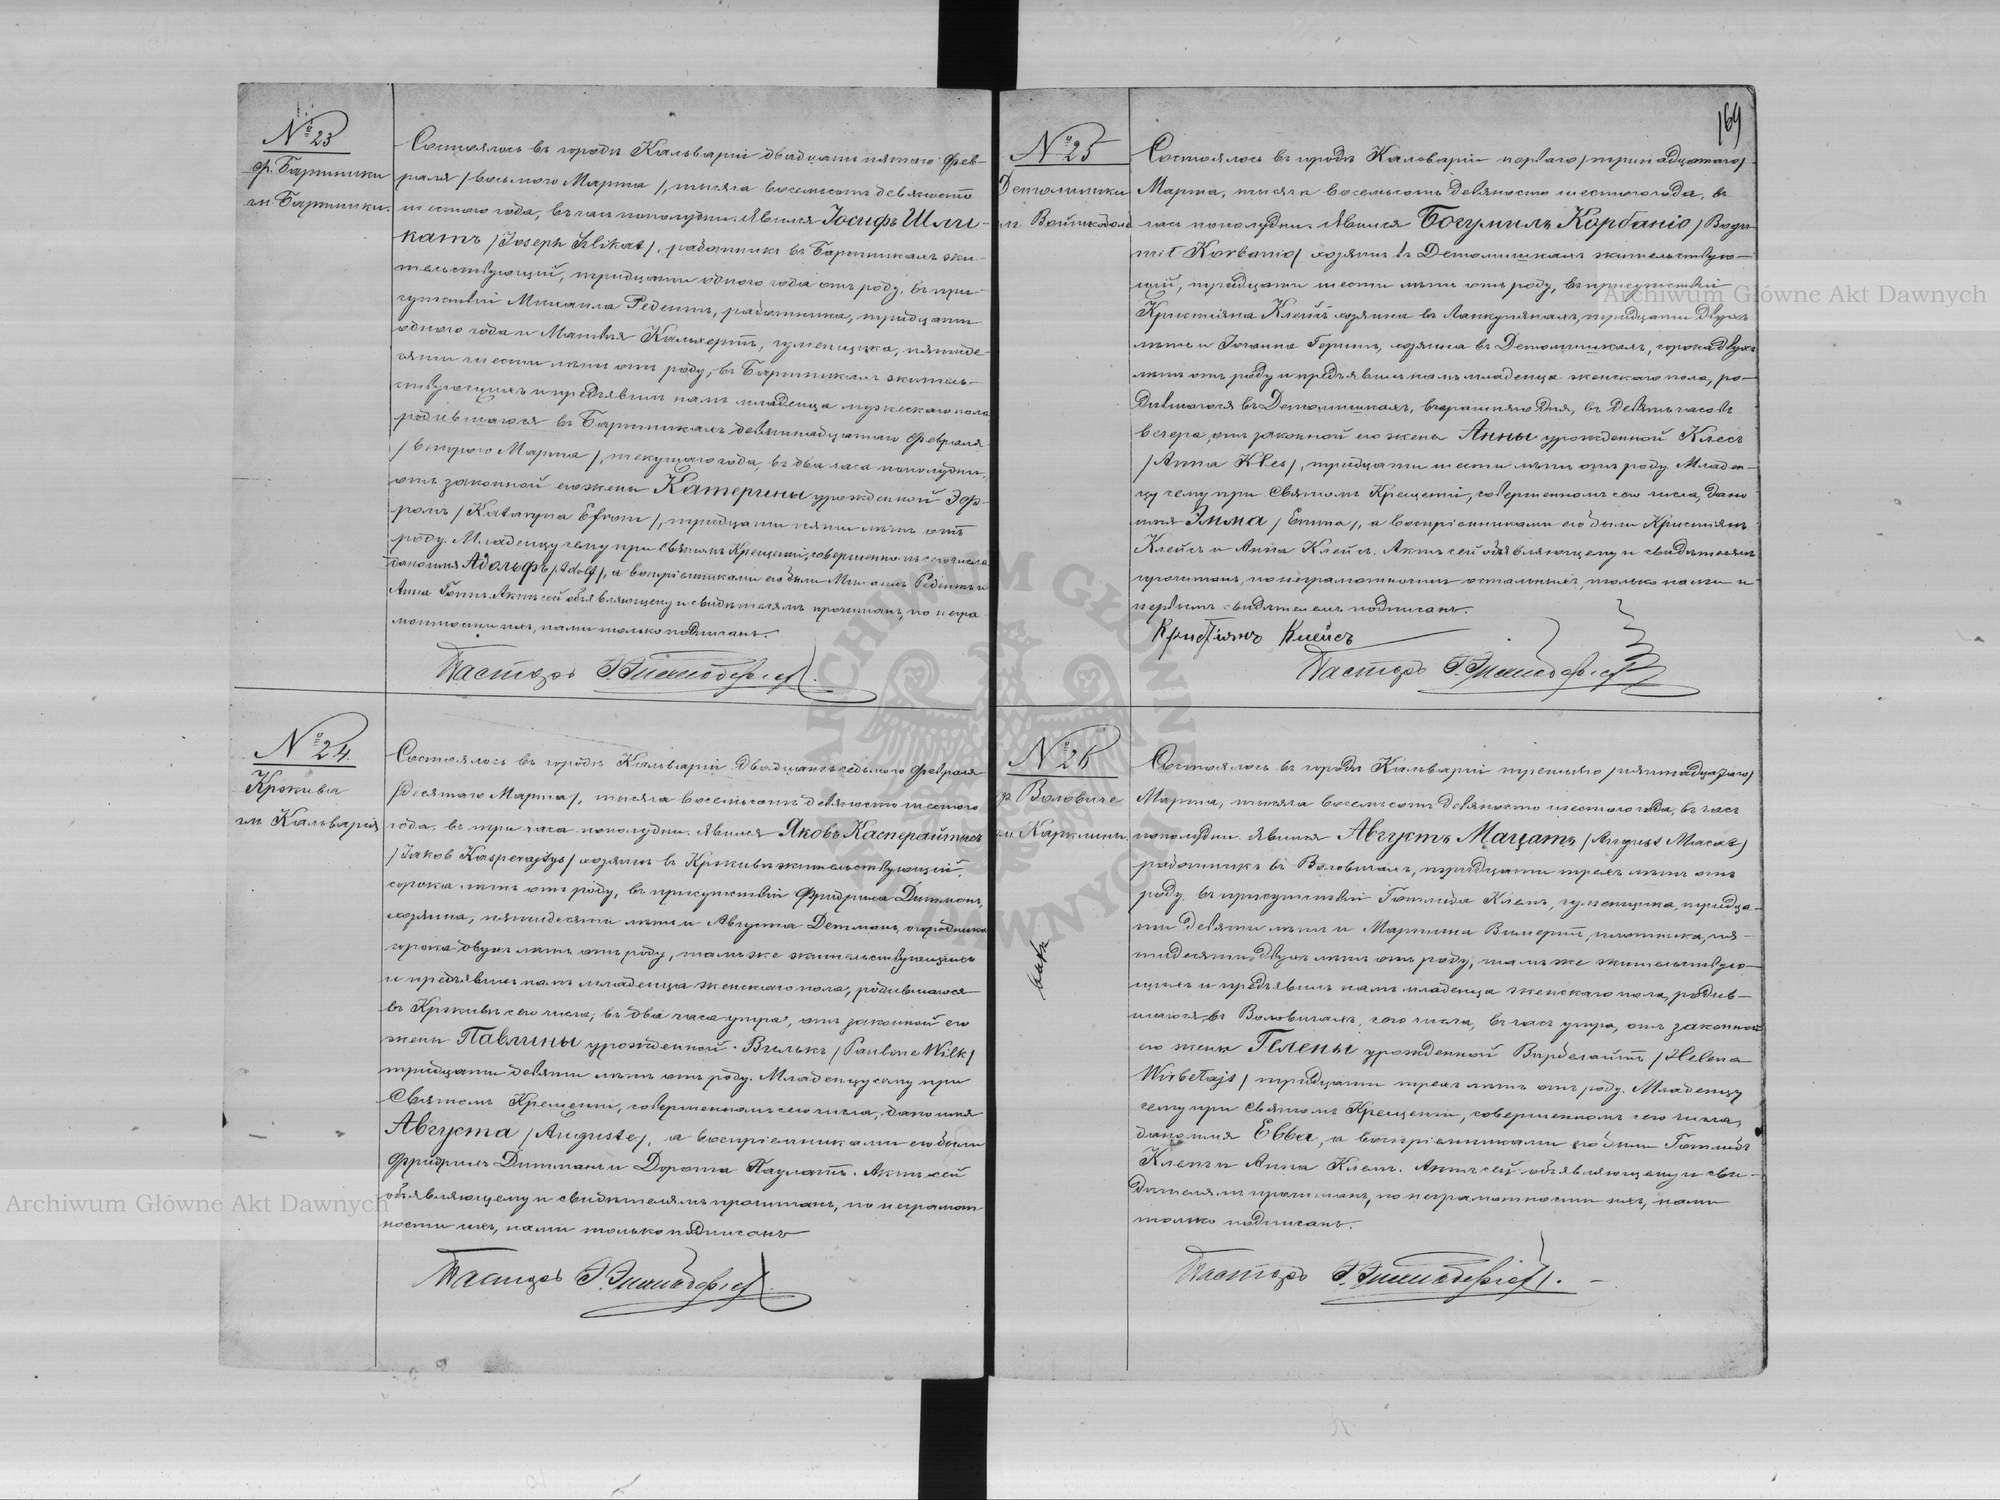 № 23
ф. Бартники
гм. Бартники.
Состоялось въ городѣ Кальваріи двадцать пятаго Фев-
раля /восьмого Марта/, тысяча восемьсотъ девяносто
шестого года, въ часъ пополудни. Явился Іосифъ Шли-
катъ /Joseph Szlikat/, работникъ въ Бартникахъ жи-
тельствующій, тридцати одного года отъ роду, въ при-
сутствіи Михаила Редентъ, работника, тридцати
одного года и Матвѣя Кальхертъ, гуменщика, пятиде-
сяти шести лѣтъ отъ роду, въ Бартникахъ житель-
ствующихъ и предъявилъ намъ младенца мужескаго пола
родившагося въ Бартникахъ девятнадцатаго Февраля
/второго Марта/, текущаго года, въ два часа пополудни,
отъ законной его жены Катерины урожденной Эф-
ромъ /Katarzyna Efrom/, тридцати пяти лѣтъ отъ
роду. Младенцу сему при Святомъ Крещеніи, совершенномъ сего числа
дано имя Адольфъ /Adolf/, а воспріемниками его были Михаилъ Редентъ и
Анна Гоппъ. Актъ сей объявляющему и свидѣтелямъ прочитанъ, по негра
мотности ихъ, нами только подписанъ.
Пасторъ
№ 24.
Кржива
гм. Кальварія
Состоялось въ городѣ Кальваріи двадцать седьмого Февраля
/десятаго Марта/, тысяча восемьсотъ девяносто шестого
года, въ три часа пополудни. Явился Яковъ Касперайтисъ
/Jakob Kasperajtys/ хозяинъ въ Крживѣ жительствующій,
сорока лѣтъ отъ роду, въ присутствіи Фридриха Диттманъ,
хозяина, пятидесяти лѣтъ и Августа Детманъ, огородника
сорока двухъ лѣтъ отъ роду, тамъ же жительствующихъ
и предъявилъ намъ младенца женскаго пола, родившагося
въ Крживѣ сего числа, въ два часа утра, отъ законной его
жены Павлины урожденной Вилькъ /Pauline Wilk/
тридцати девяти лѣтъ отъ роду. Младенцу сему при
Святомъ Крещеніи, совершенномъ сего числа, дано имя
Августа /Auguste/, а воспріемниками его были
Фридрихъ Диттманъ и Дорота Паулатъ. Актъ сей
объявляющему и свидѣтелямъ прочитанъ, по неграмот
ности ихъ, нами только подписанъ
Пасторъ
169
№ 25
Детомишки
Состоялось въ городѣ Кальваріи перваго /тринадцатаго/
Марта, тысяча восемьсотъ девяносто шестого года, въ
часъ пополудни. Явился Богумилъ Корбаніо /Bogu-
mil Korbanio/ хозяинъ въ Детомишкахъ жительствую-
щій, тридцати шести лѣтъ отъ роду, въ присутствіи
Христіяна Клейсъ хозяина въ Ланкупянахъ, тридцати двухъ
лѣтъ и Іоганна Герингъ, хозяина въ Детомишкахъ, сорока двухъ
лѣтъ отъ роду и предъявилъ намъ младенца женскаго пола, ро-
дившагося въ Детомишкахъ, вчерашняго дня, въ девять часовъ
вечера, отъ законной его жены Анны урожденной Клесъ
/Anna Kles/, тридцати шести лѣтъ отъ роду. Младен-
цу сему при Святомъ Крещеніи, совершенномъ сего числа, дано
имя Эмма /Emma/, а воспріемниками его были Христіянъ
Клейсъ и Анна Клейсъ. Актъ сей объявляющему и свидѣтелямъ
прочитанъ, по неграмотности остальныхъ, только нами и
первымъ свидѣтелемъ подписанъ.
Христіянъ Клейсъ
Пасторъ
№ 26
ф. Воловиче
Состоялось въ городѣ Кальваріи третьяго /пятнадцатаго/
Марта, тысяча восемьсотъ девяносто шестого года, въ часъ
пополудни. Явился Августъ Мацатъ /August Macat/
работникъ въ Воловичахъ, тридцати трехъ лѣтъ отъ
роду, въ присутствіи Готлиба Клемъ, гуменщика, тридца-
ти девяти лѣтъ и Мартина Вилертъ, плотника, пя-
тидесяти двухъ лѣтъ отъ роду, тамъ же жительствую-
щихъ и предъявилъ намъ младенца женскаго пола, родив-
шагося въ Воловичахъ, сего числа, въ часъ утра, отъ законной
его жены Гелены урожденной Вирбелайтъ /Helena
Wirbełajt/ тридцати трехъ лѣтъ отъ роду. Младенцу
сему при Святомъ Крещеніи, совершенномъ сего числа,
дано имя Евва, а воспріемниками его были Готлибъ
Клемъ и Анна Клемъ. Актъ сей объявляющему и сви-
дѣтелямъ прочитанъ, по неграмотности ихъ, нами
только подписанъ.
Пасторъ
Archiwum Główne Akt Dawnych
Archiwum Główne Akt Dawnych
ARCHIWUM GŁÓWNE AKT DAWNYCH